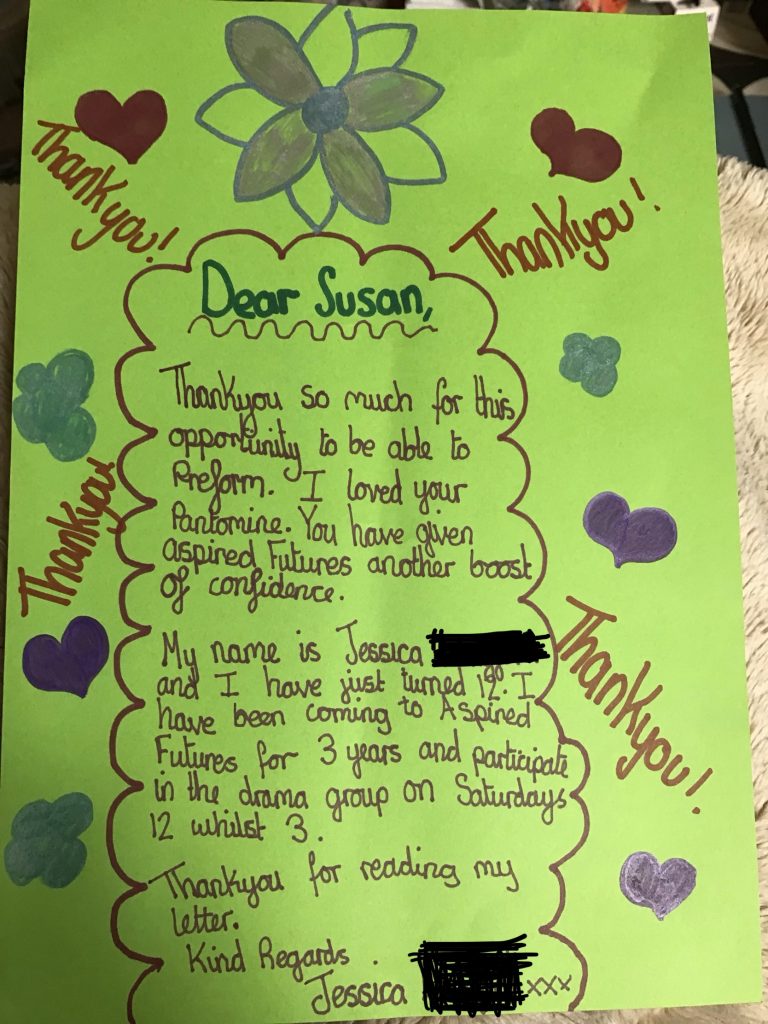 Thankyou!
Thankyou!
Dear Susan,
Thankyou so much for this
opportunity to be able to
Preform. I loved your
Pantomine. You have given
aspired Futures another boost
of confidence.
Thankyou!
My name is Jessica
and I have just turned I
have been coming to Aspired
Futures for 3 years and participate
in the drama group on Saturdays
12 whilst 3.
Thankyou!
Thankyou for reading my
letter.
Kind Regards.
Jessica xxx